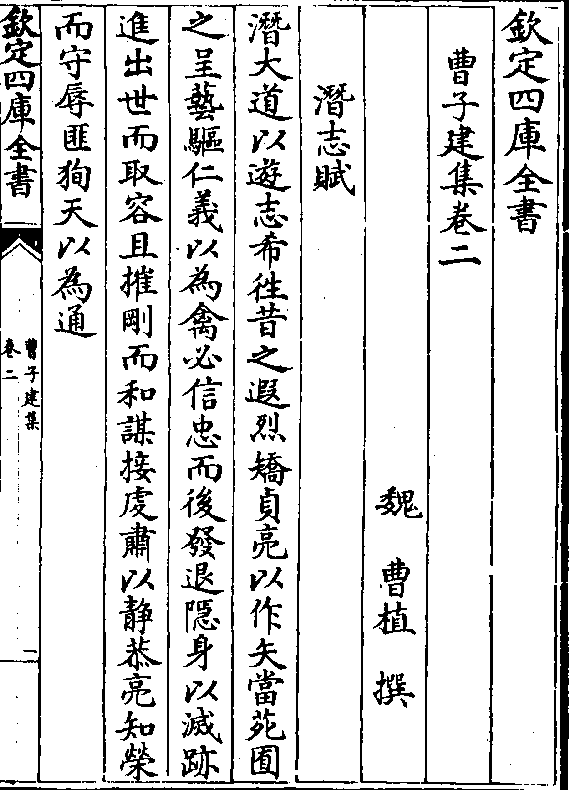 欽定四庫全書
曹子建集卷二
魏 曹植 撰
潛志賦
潛大道以遊志希徃昔之遐烈矯貞亮以作矢當苑囿
之呈藝驅仁義以為禽必信忠而後發退隱身以滅跡
進出世而取容且摧剛而和謀接處肅以静恭亮知榮
而守辱匪狥天以為通
欽定四庫全書
曹子建集
卷二
一